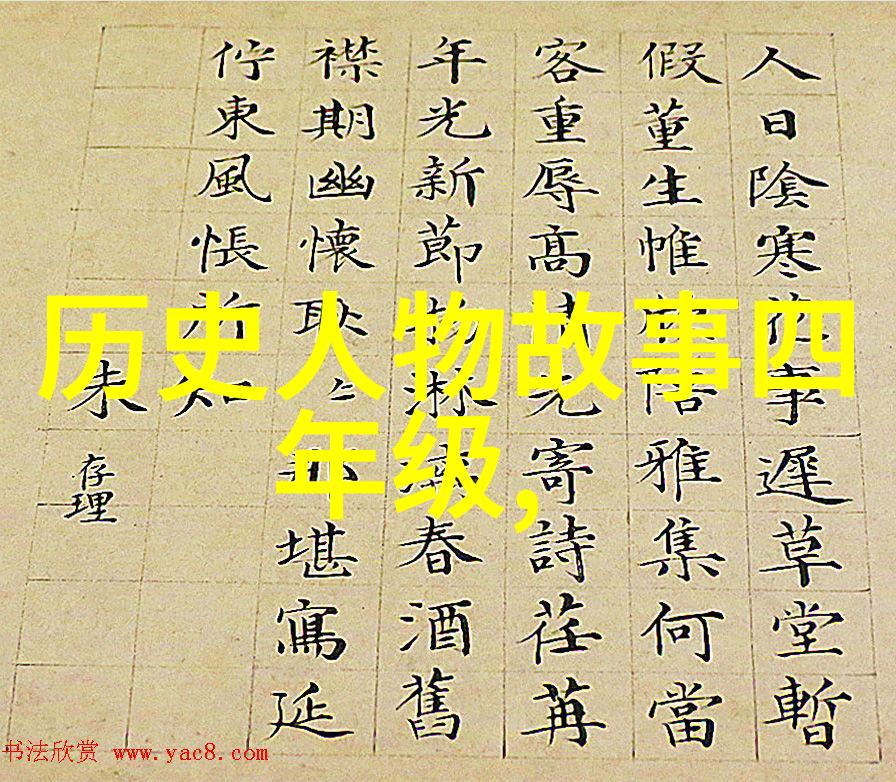 人日陰寒事遲草堂暫
假董生帷陪雅集何當
客重辱高先寄詩荏苒
年光新節物淋漓春酒舊
襟期幽懷耿々那堪寫延
佇東風悵所知
朱存理
历史人物故事四
年级,
书法欣赏 www.yac8.com